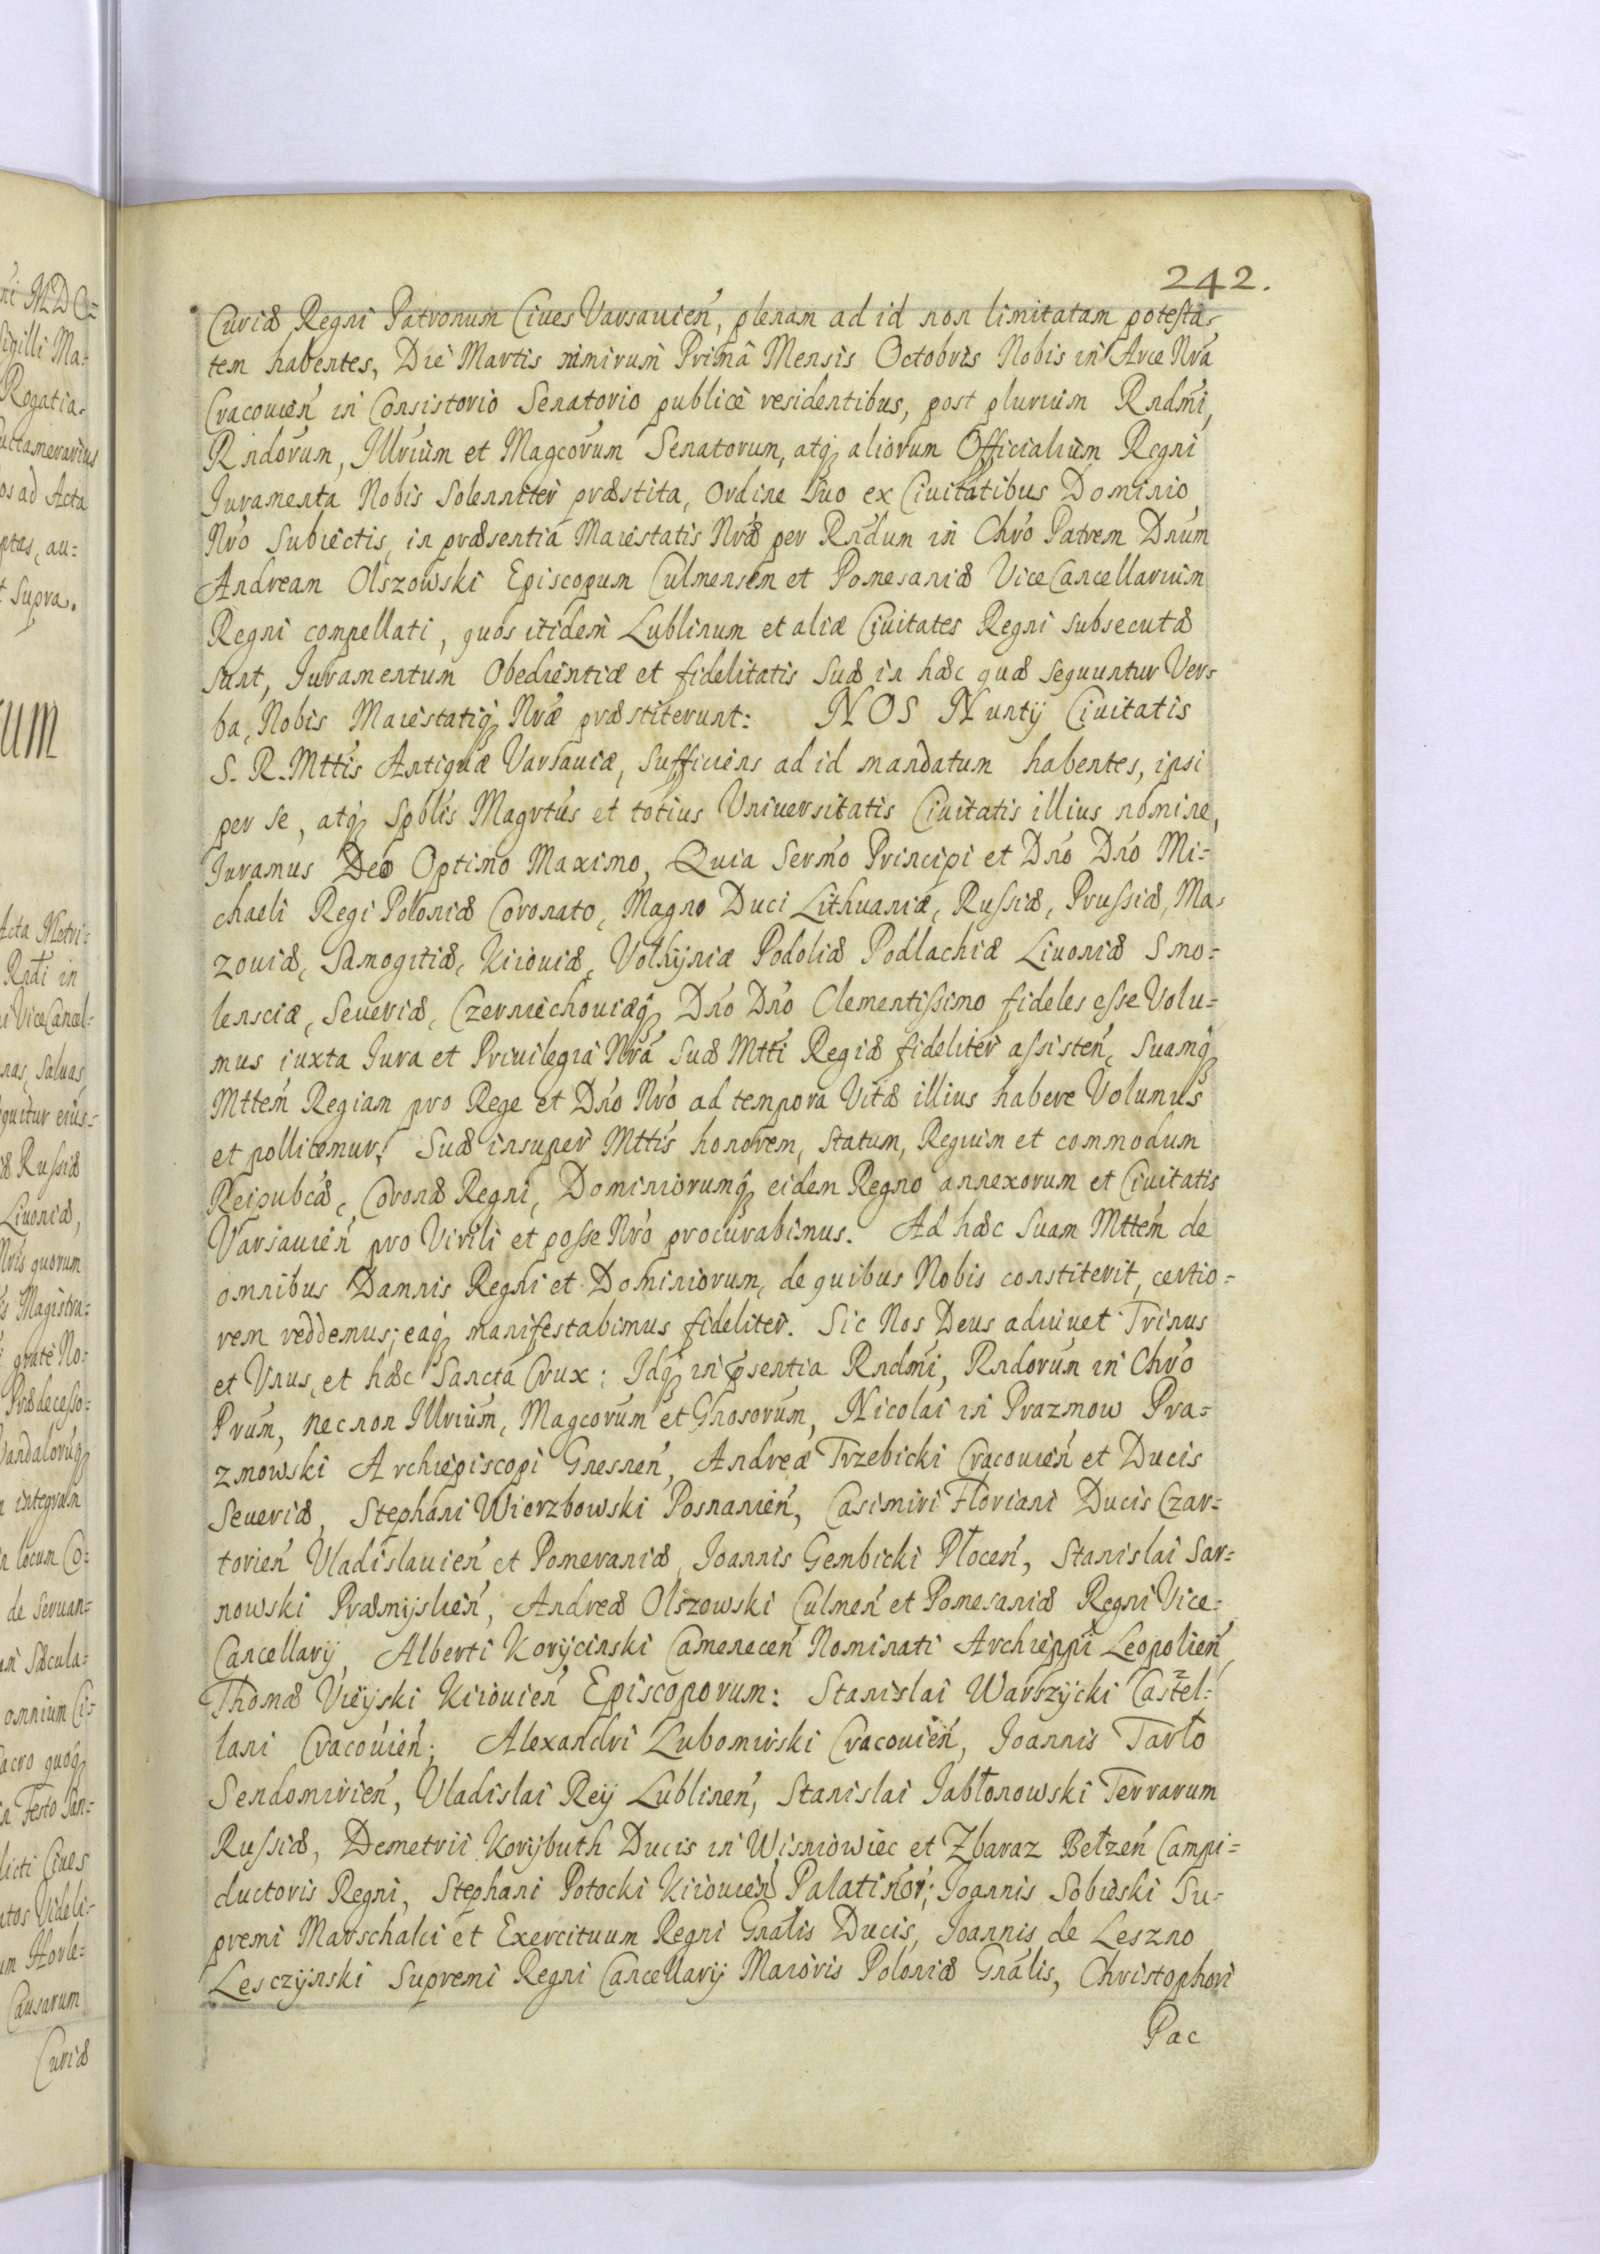 242.
Curiæ Regni Patronum Ciues Varsauień, plenam ad id non limitatam potesta-
tem habentes, Die Martis nimirum Primâ Mensis Octobris Nobis in Arce Nrâ
Cracouień in Consistorio Senatorio publicè residentibus, post plurium Rndmi,
Rndorum, Illrium et Magcorum Senatorum, atq₃ aliorum Officialium Regni
Iuramenta Nobis Solenniter præstita, Ordine Suo ex Ciuitatibus Dominio
Nro Subiectis, in præsentia Maiestatis Nræ per Rndum in Chro Patrem Dnum
Andream Olszowski Episcopum Culmensem et Pomesaniæ ViceCancellarium
Regni compellati, quos itidem Lublinum et aliæ Ciuitates Regni subsecutæ
sunt, Iuramentum Obedientiæ et fidelitatis Suæ in hæc quæ sequuntur Ver-
ba, Nobis Maiestatiq₃ Nræ præstiterunt: NOS Nuntij Ciuitatis
S. R. Mttis Antiquæ Varsauiæ, Sufficiens ad id mandatum habentes, ipsi
per se, atq₃ Spblis Magrtus et totius Vniuersitatis Ciuitatis illius nomine,
Iuramus Deo Optimo Maximo, Quia Sermo Principi et Dno Dno Mi-
chaeli Regi Poloniæ Coronato, Magno Duci Lithuaniæ, Russiæ, Prussiæ, Ma-
zouiæ, Samogitiæ, Kiiouiæ, Volhyniæ Podoliæ Podlachiæ Liuoniæ Smo-
lensciæ, Seueriæ, Czerniechouiæq₃ Dno Dno Clementissimo fideles esse Volu-
mus iuxta Iura et Priuilegia Nra Suæ Mtti Regiæ fideliter assisteń, Suamq₃
Mttem Regiam pro Rege et Dno Nro ad tempora Vitæ illius habere Volumus
et pollicemur: Suæ insuper Mttis honorem, statum, Regium et commodum
Reipubcæ, Coronæ Regni, Dominiorumq₃ eidem Regno annexorum et Ciuitatis
Varsauień pro Virili et posse Nro procurabimus. Ad hæc Suam Mttem de
omnibus Damnis Regni et Dominiorum, de quibus Nobis constiterit, certio-
rem reddemus; eaq₃ manifestabimus fideliter. Sic Nos Deus adiuuet Trinus
et Vnus, et hæc Sancta Crux: Idq₃ in p̃sentia Rndmi, Rndorum in Chro
Prum, nec non Illrium, Magcorum et Gnosorum, Nicolai in Prazmow Pra-
zmowski Archiepiscopi Gnesneń, Andreæ Trzebicki Cracouień et Ducis
Seueriæ, Stephani Wierzbowski Posnanień, Casimiri Floriani Ducis Czar-
torień Vladislauień et Pomeraniæ, Ioannis Gembicki Płoceń, Stanislai Sar-
nowski Præmyslień, Andreæ Olszowski Culmeń et Pomesaniæ Regni Vice-
Cancellarij, Alberti Korycinski Cameneceń Nominati Archieppi Leopolień
Thomæ Vieyski Kiiouień Episcoporum: Stanislai Warszycki Castel-
lani Cracouień; Alexandri Lubomirski Cracouień, Ioannis Tarło
Sendomirień, Vladislai Rey Lublineń, Stanislai Jabłonowski Terrarum
Russiæ, Demetrii Korybuth Ducis in Wisniowiec et Zbaraz Bełzeń Campi-
ductoris Regni, Stephani Potocki Kiiouień Palatinor; Ioannis Sobieski Su-
premi Marschalci et Exercituum Regni Gnalis Ducis, Ioannis de Leszno
Lesczynski Supremi Regni Cancellarij Maioris Poloniæ Gnalis, Christophori
Pac